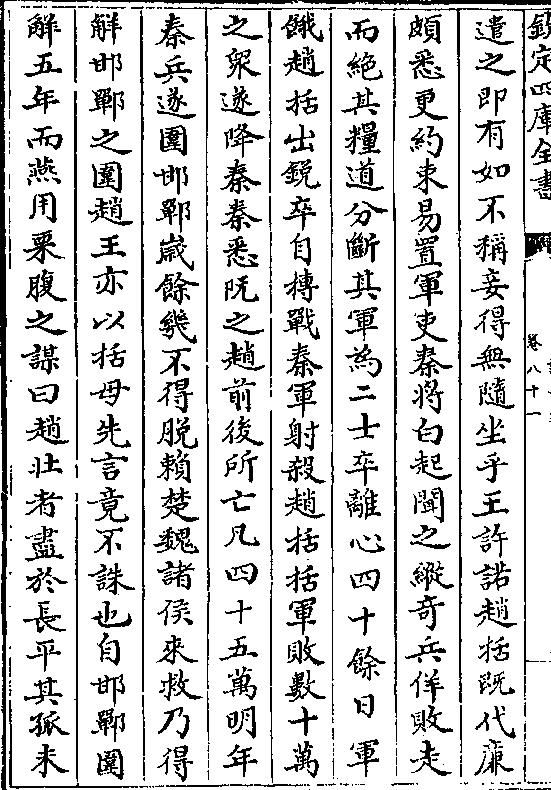 欽定四庫全書
卷八十一
遣之即有如不稱妾得無隨坐乎王許諾趙括既代廉
頗悉更約束易置軍吏秦將白起聞之縱奇兵佯敗走
而絶其糧道分斷其軍為二士卒離心四十餘日軍
餓趙括出鋭卒自搏戰秦軍射殺趙括括軍敗數十萬
之衆遂降秦秦悉阬之趙前後所亡凡四十五萬明年
秦兵遂圍邯鄲嵗餘幾不得脱賴楚魏諸侯來救乃得
解邯鄲之圍趙王亦以括母先言竟不誅也自邯鄲圍
解五年而燕用栗腹之謀曰趙壯者盡於長平其孤未